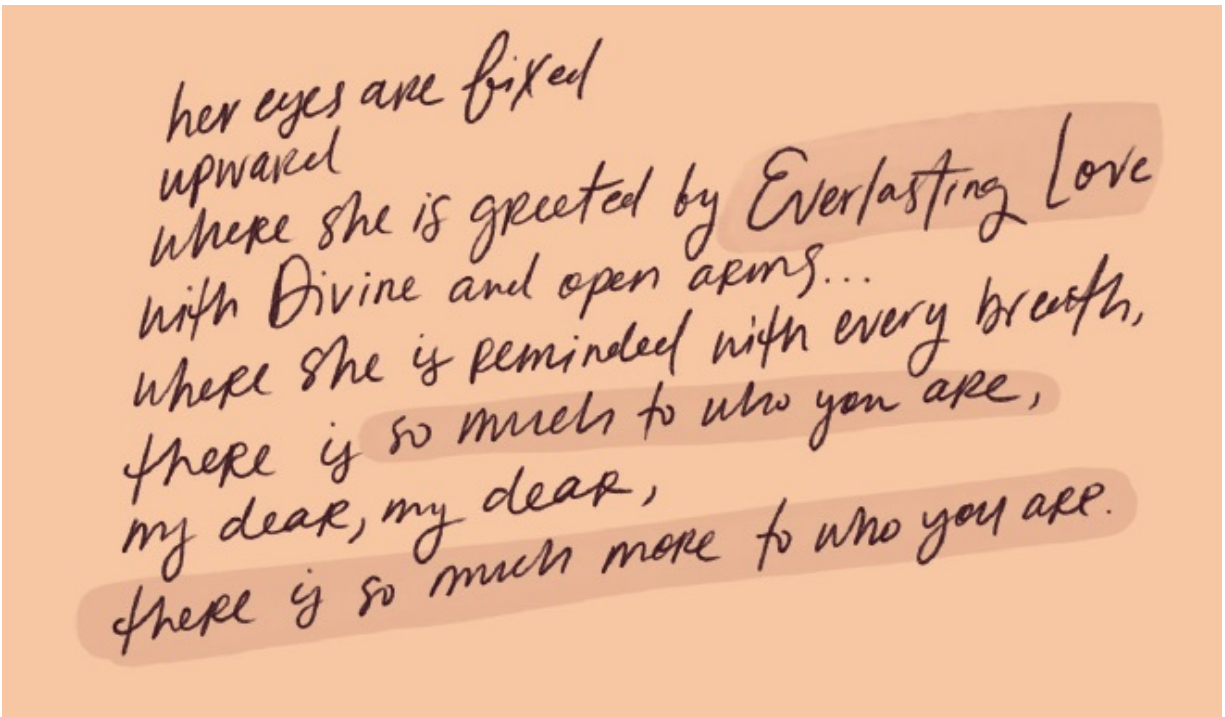 her eyes are fixed
upward
where she is greeted by Everlasting Love
with Divine and open arms...
where she is reminded with every breath,
there is so much to who you are,
my dear, my dear,
there is so much more to who you are.